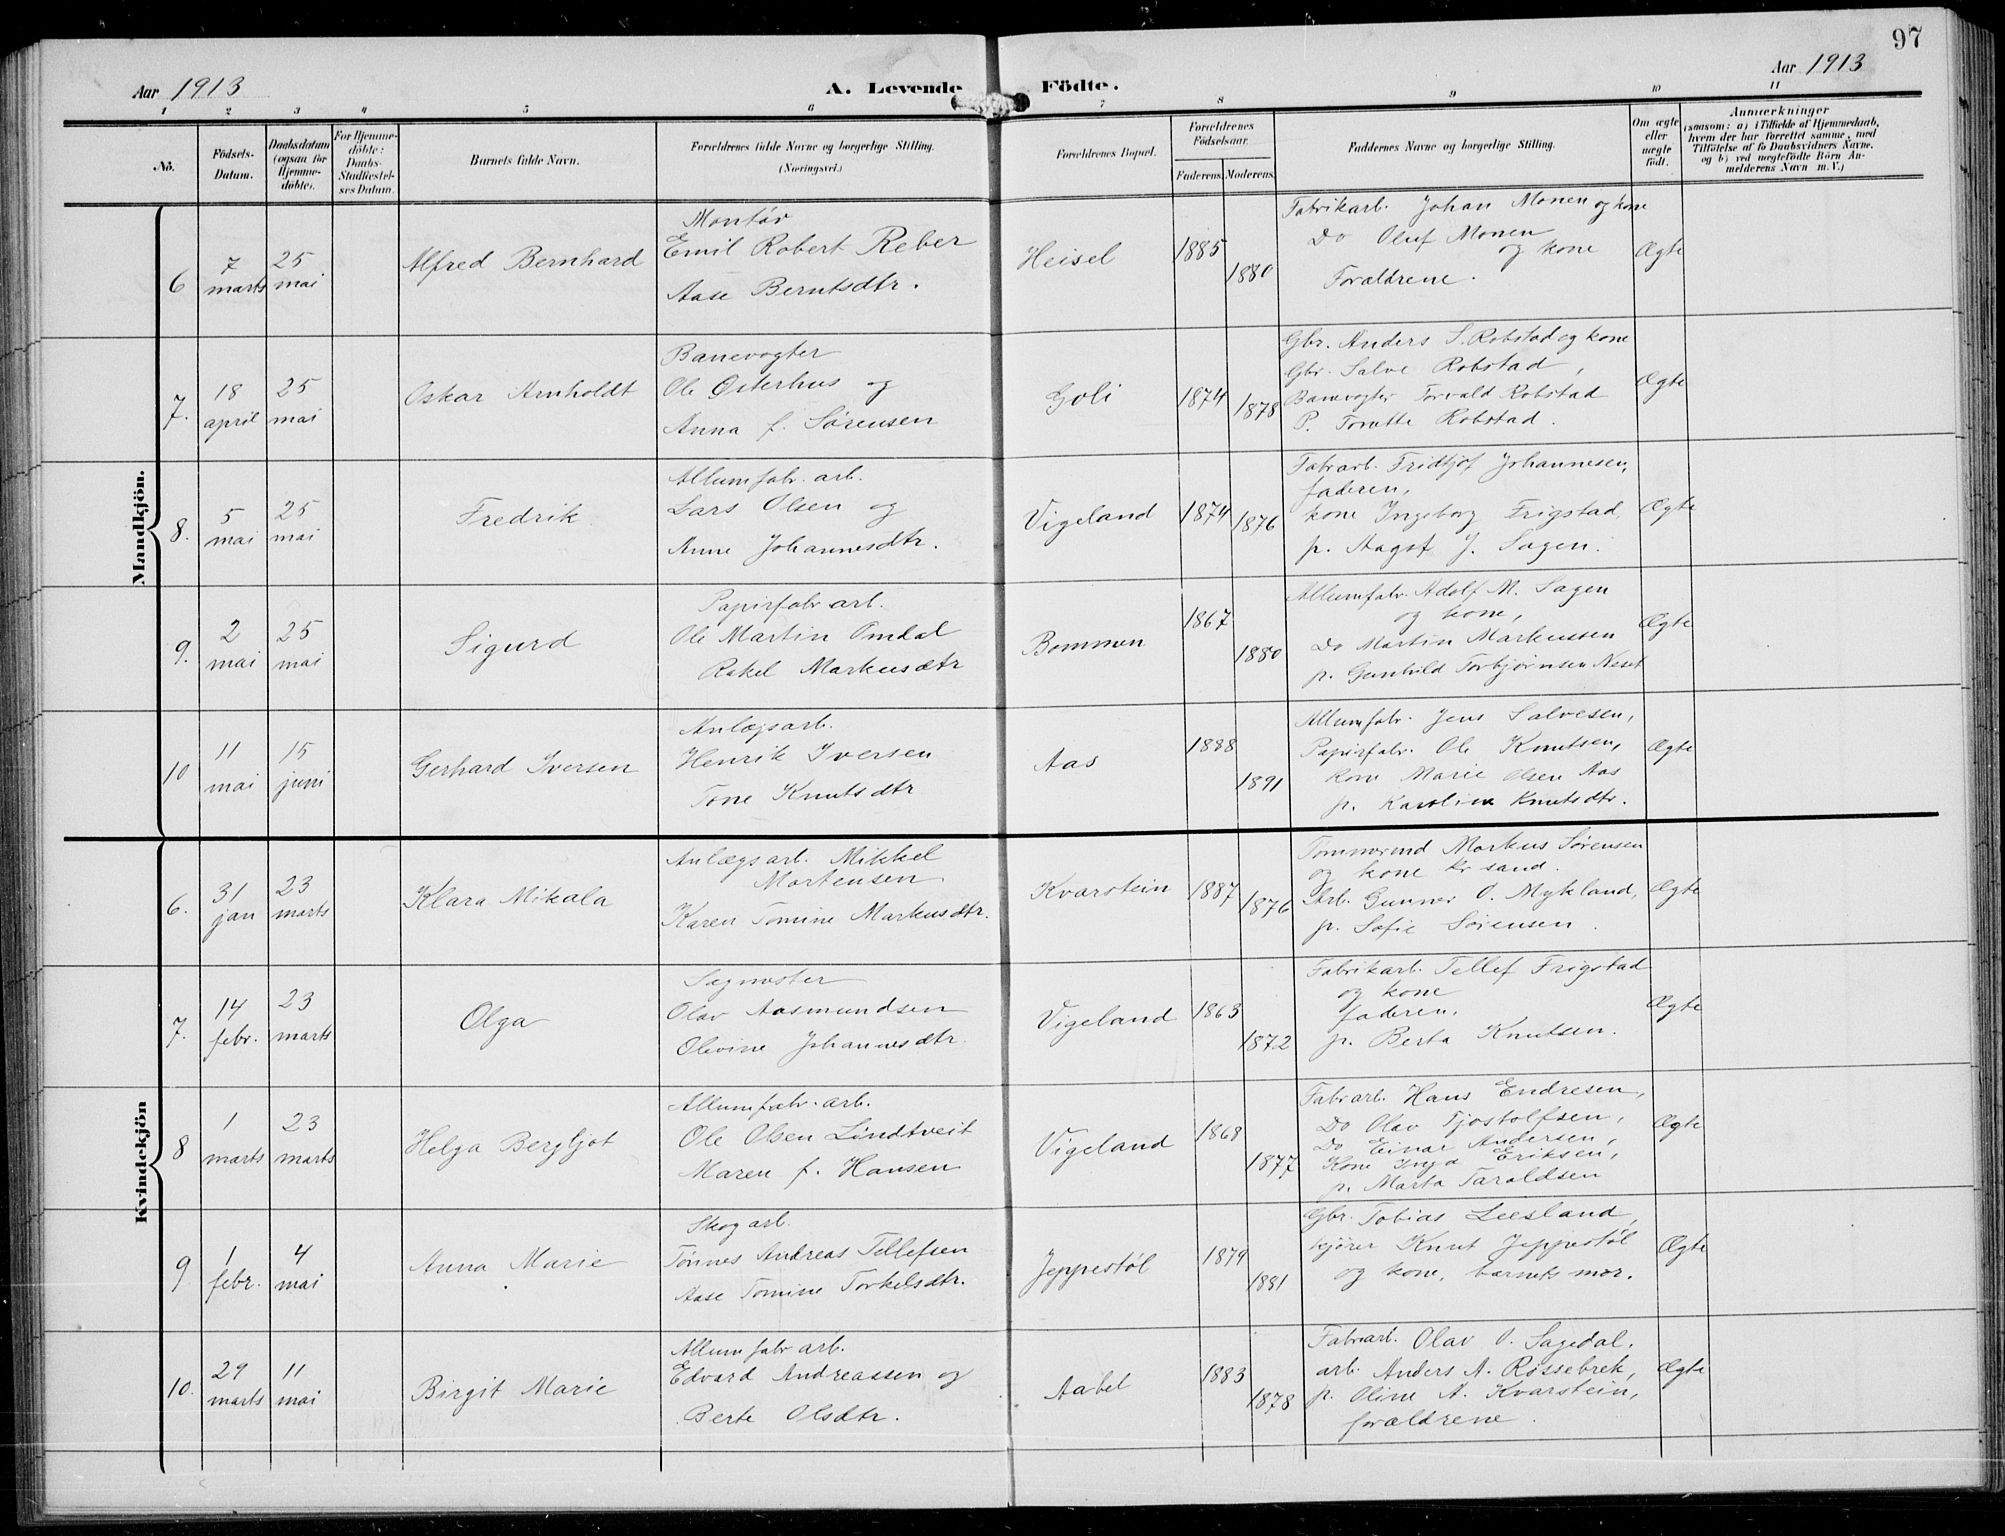 97
Aar 1913
A. Levende Födte.
Aar 1913
1 2 3 4 5 6 7 8 9 10 11
No.
Födsels-Datum.
Daabsdatum (ogsaa for Hjemmedöbte).
For Hjemmedöbte: Daabs-Stadfæstelses Datum.
Barnets fulde Navn.
Forældrenes fulde Navne og borgerlige Stilling. (Næringsvei.)
Forældrenes Bopæl.
Forældrenes Födselsaar.
Faderens. Moderens.
Faddernes Navne og borgerlige Stilling.
Om ægte eller uægte födt.
Anmærkninger
(saasom: a) i Tilfælde af Hjemmedaab, hvem der har forrettet samme, med Tilföielse af to Daabsvidners Navne, og b) ved uægtefödte Börn Anmelderens Navn m.V.)
Mandkjön.
6
7 marts
25 mai
Alfred Bernhard
Montør
Emil Robert Reber
Aase Berntsdtr.
Heisel
1885
1880
Fabrikarb. Johan Monen og kone
Do Oluf Monen
og kone
Forældrene.
Ægte
7.
18 april
25 mai
Oskar Arnholdt
Banevogter
Ole Østerhus og
Anna f. Sørensen
Goli
1874
1878
Gbr. Anders S. Robstad og kone
Gbr. Salve Robstad,
Banevogter Torvald Robstad
P. Tomtte Robstad.
Ægte
8.
5 mai
25 mai
Fredrik
Allumfabr. arb.
Lars Olsen og
Anne Johannesdtr.
Vigeland
1874
1876
Fabrarb. Fridtjof Johannesen,
faderen,
kone Ingeborg Frigstad,
p. Aagot J. Sagen.
Ægte
9.
2 mai
25 mai
Sigurd
Papirfabr arb.
Ole Martin Omdal
Rakel Markusdtr
Bommen
1867
1880
Allumfabr. Adolf M. Sagen
og kone,
Do Martin Markussen
p. Gunhild Torbjørnsen Neset
Ægte
10
11 mai
15 juni
Gerhard Iversen
Anlægsarb.
Henrik Iversen
Tone Knutsdtr
Aas
1888
1891
Allumfabr. Jens Salvesen,
Papirfabr. Ole Knutsen,
kone Marie Olsen Aas
p. Karoline Knutsdtr.
Ægte
Kvindekjön
6.
31 jan
23 marts
Klara Mikala
Anlægsarb. Mikkel
Mortensen
Karen Tomine Markusdtr.
Kvarstein
1887
1876
Tømmermd Markus Sørensen
og kone Kr sand.
Arb. Gunner O. Mykland,
p. Sofie Sørensen.
Ægte
7.
14 febr.
23 marts
Olga
Sagmester
Olav Aasmundsen
Olevine Johannesdtr.
Vigeland
1863
1872
Fabrikarb. Tellef Frigstad
og kone
faderen,
p. Berta Knutsen.
Ægte
8
1 marts
23 marts
Helga Bergljot
Allumfabr. arb.
Ole Olsen Lindtveit
Maren f. Hansen
Vigeland
1868
1877
Fabrarb. Hans Endresen,
Do Olav Tjostolfsen,
Do Einar Andersen,
Kone Inga Eriksen,
p. Marta Taraldsen
Ægte
9
1 febr.
4 mai
Anna Marie
Skogarb.
Tønnes Andreas Tellefsen
Aase Tomine Torkelsdtr.
Jeppestøl
1879
1881
Gbr. Tobias Leesland,
kjører Knut Jeppestøl
og kone, barnets mor.
Ægte
10.
29 marts
11 mai
Birgit Marie
Allumfabr arb.
Edvard Andreassen og
Berte Olsdtr.
Aabel
1883
1878
Fabrarb. Olav O. Sagedal.
arb. Anders A. Røssebrek,
p. Oline A. Kvarstein,
forældrene.
Ægte